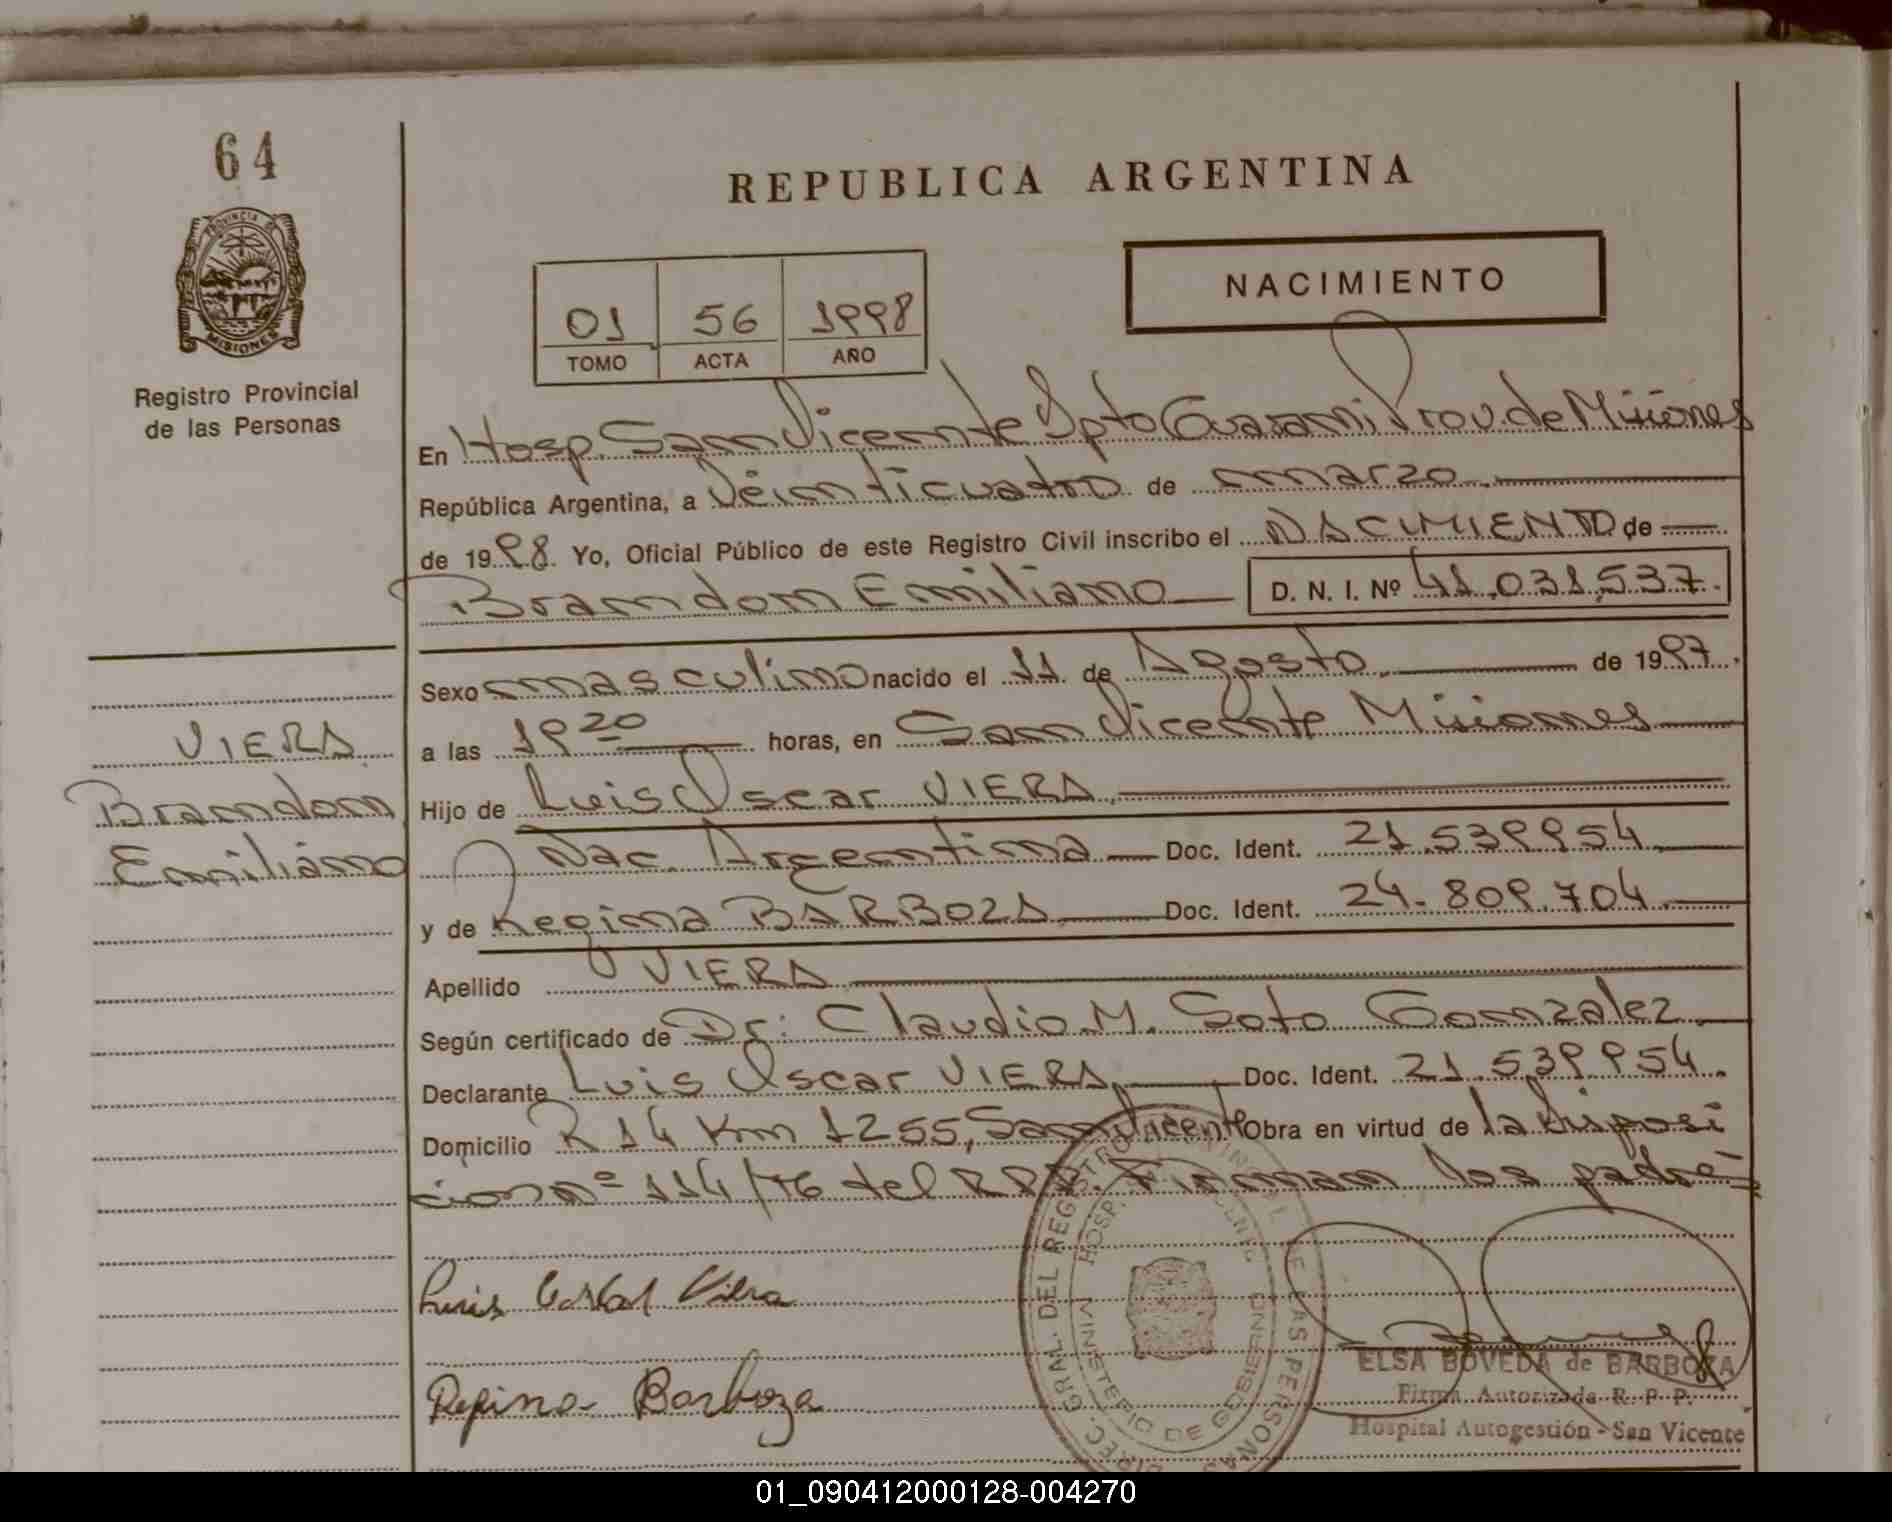 64
REPUBLICA ARGENTINA
PROVINCIA DE
MISIONES
NACIMIENTO
01 56 1998
TOMO ACTA AÑO
Registro Provincial
de las Personas
En Hosp. San Vicente Dpto Guarani Prov. de Misiones
República Argentina, a Veinticuatro de marzo
de 1998 Yo, Oficial Público de este Registro Civil inscribo el NACIMIENTO de
Brandon Emiliano D. N. I. Nº 41.031.537.
Sexo masculino nacido el 11 de Agosto de 1997.
a las 19 20 horas, en San Vicente Misiones
Hijo de Luis Oscar VIERA
Nac. Argentina Doc. Ident. 21.539954
y de Regina BARBOZA Doc. Ident. 24.809.704
Apellido VIERA
Según certificado de Dr: Claudio M. Soto Gonzalez
Declarante Luis Oscar VIERA Doc. Ident. 21.539954.
Domicilio R 14 Km 1255, San Vicente Obra en virtud de la disposi
cion nº 114/76 del RPP. Firman los padres
VIERA
Brandon
Emiliano
Luis Viera
Regina Barboza
DIREC. GRAL. DEL REGISTRO PROVINCIAL DE LAS PERSONAS
MINISTERIO DE GOBIERNO
HOSP.
ELSA BOVEDA de BARBOZA
Firma Autorizada R. P. P.
Hospital Autogestión - San Vicente
01_090412000128-004270